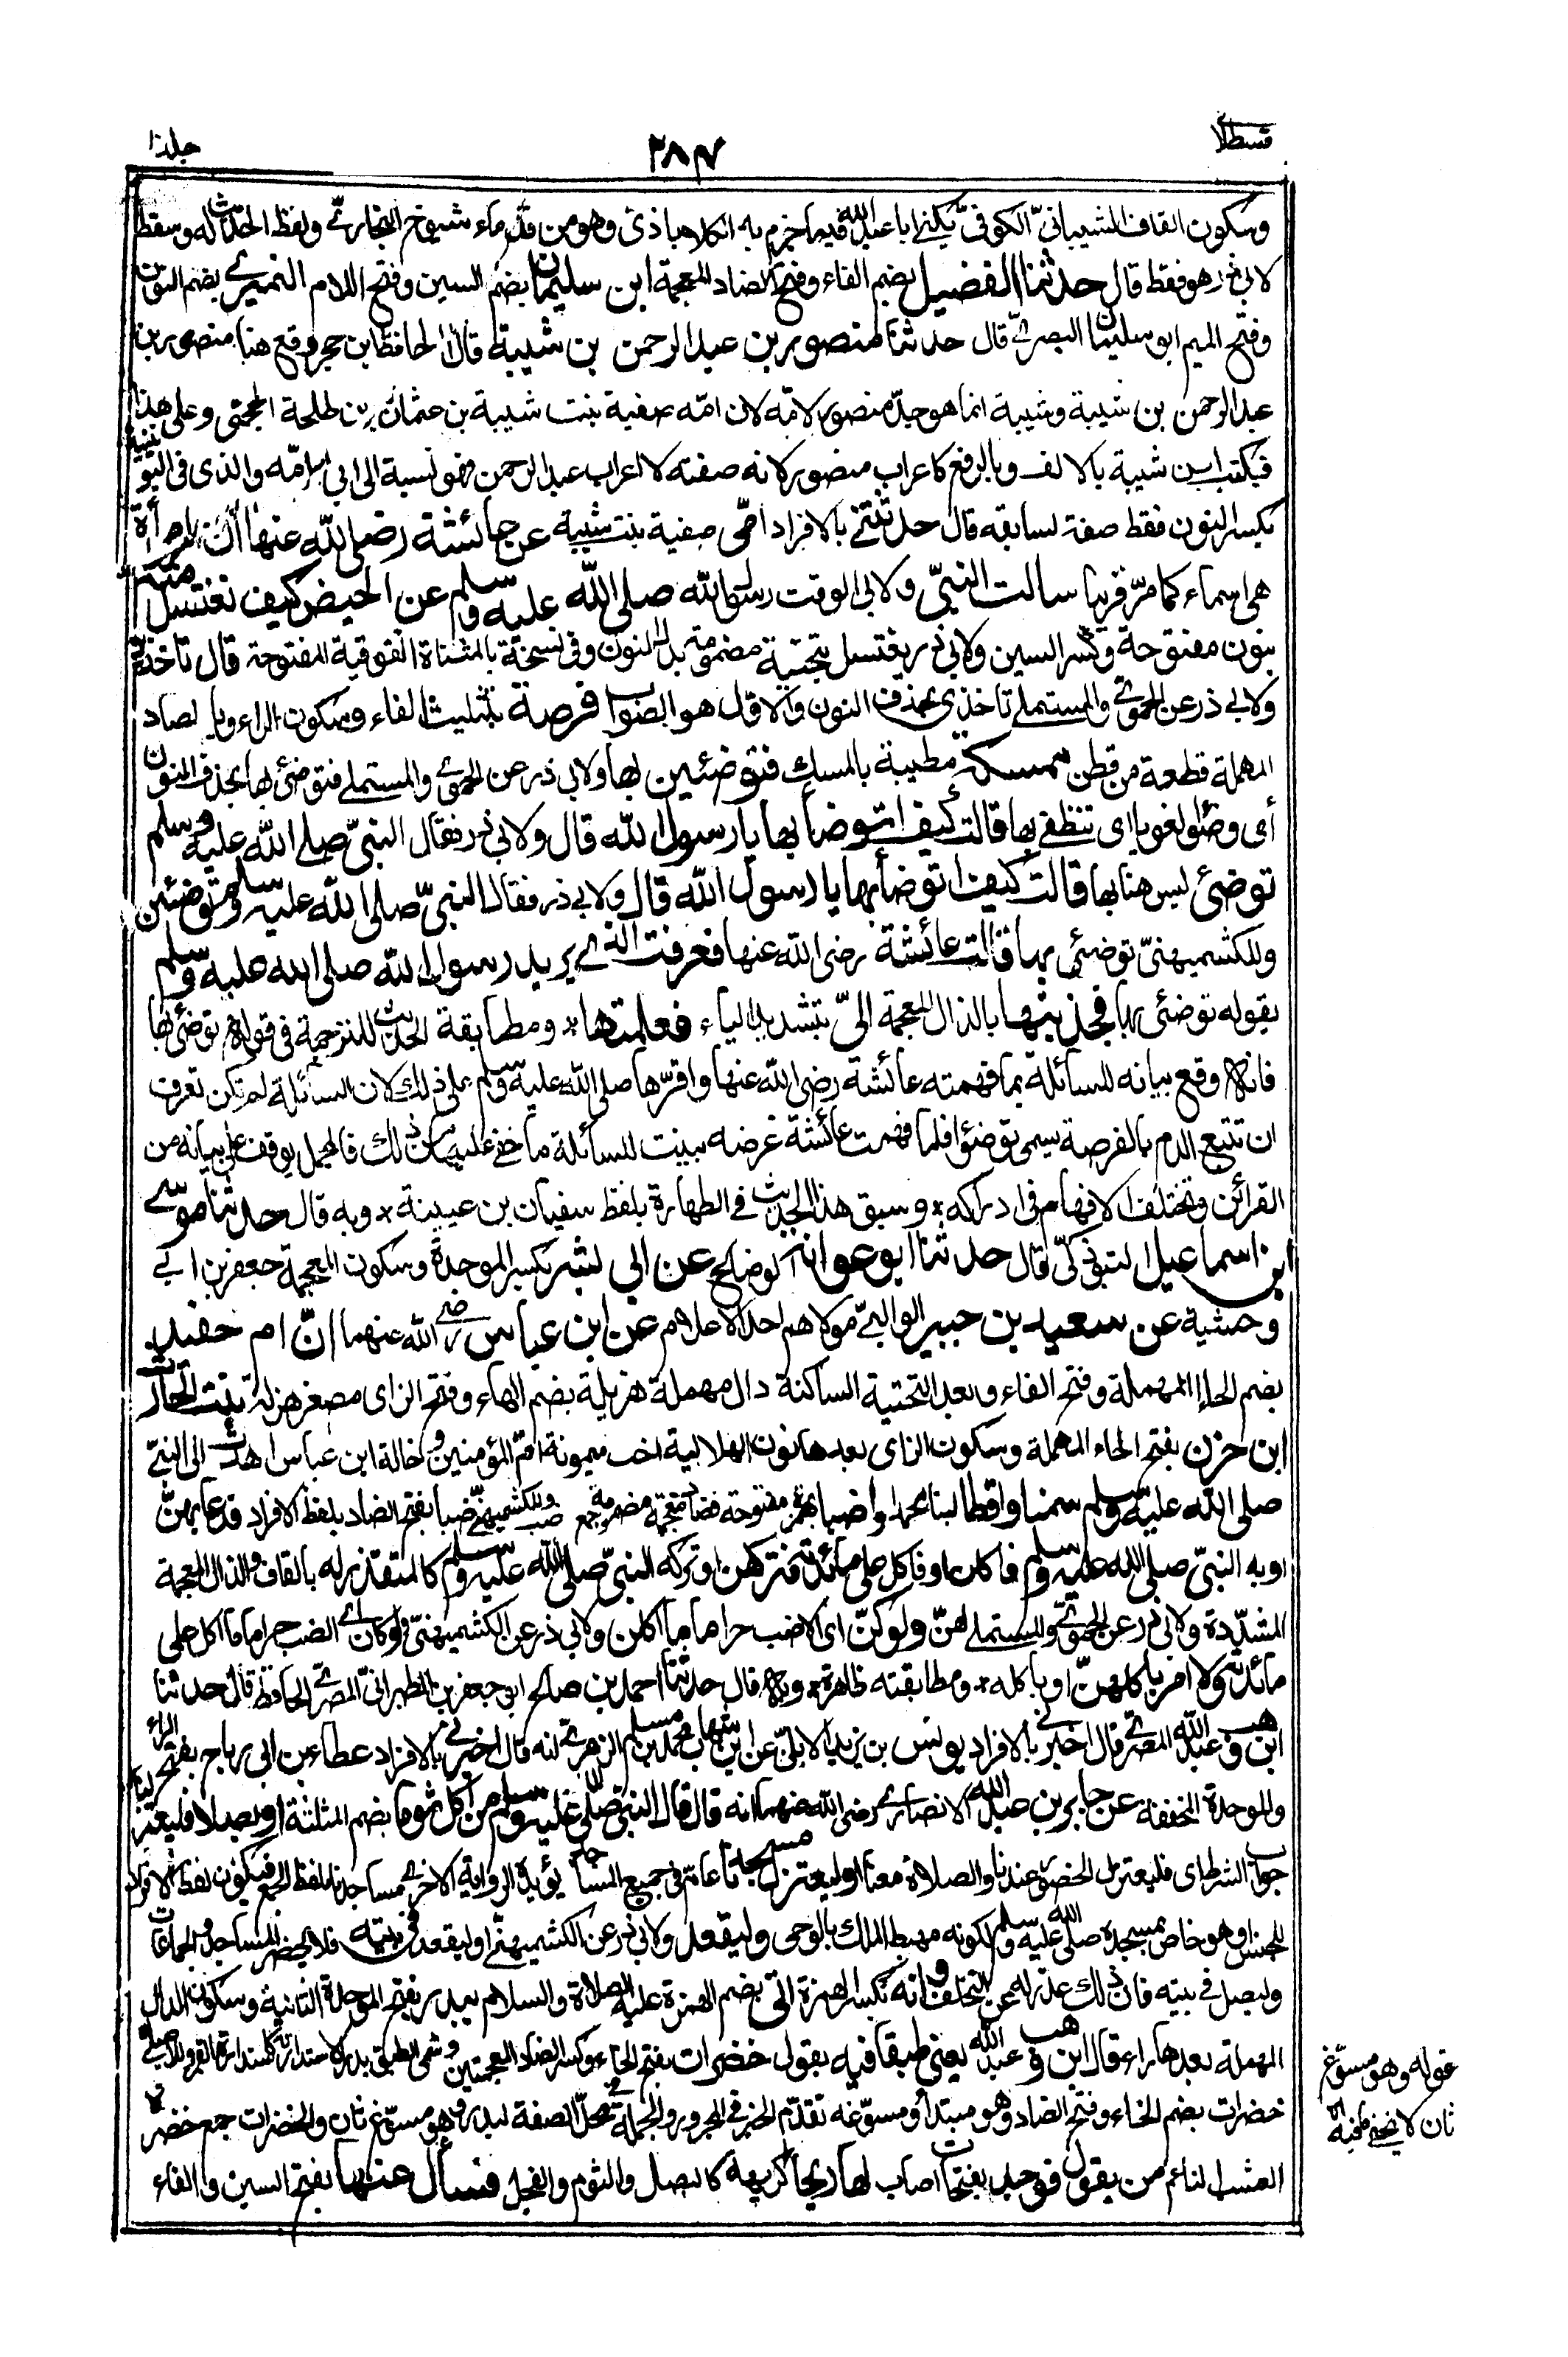 قسطلا
٢٨٧
جلد١٠
وسكون القاف الشيبانيّ الكوفيّ يكنى ابا عبدالله فيما جزم به الكلاباذى وهو من قدماء شيوخ البخاريّ ولفظ الحديث له وسقط
لابى ذر هو فقط قال حدثنا الفضيل بضم الفاء وفتح الضاد المعجمة ابن سليمان بضم السين وفتح اللام النميرى بضم النون
وفتح الميم ابو سليمان البصرىّ قال حدثنا منصور بن عبدالرحمن بن شيبة قال الحافظ ابن حجر وقع هنا منصور بن
عبدالرحمن بن شيبة وشيبة انما هو جدّ منصور لامّه لان امّه صفية بنت شيبة بن عثمان بن طلحة الحجبى وعلى هذا
فيكتب ابن شيبة بالالف وبالرفع كاعراب منصور لانه صفته لا اعراب عبدالرحمن فهو نسبة الى ابى امّه والذى فى اليونينية
بكسر النون فقط صفة لسابقه قال حدثتنى بالافراد امّى صفية بنت شيبة عن عائشة رضى الله عنها انّ امرأة
هى اسماء كما مرّ قريبا سالت النبىّ ولابى الوقت رسول الله صلى الله عليه وسلم عن الحيض كيف نغتسل منه
بنون مفتوحة وكسر السين ولابى ذر يغتسل بتحتية مضمومة بدل النون وفى نسخة بالمثناة الفوقية المفتوحة قال تاخذين
ولابى ذر عن الحموى والمستملى تاخذى بحذف النون والاوّل هو الصواب فرصة بتثليث الفاء وسكون الراء وبالصاد
المهملة قطعة من قطن ممسكة مطيبة بالمسك فتوضئين بها ولابى ذر عن الحموى والمستملى فتوضئى بها بحذف النون
أى وضوأ لغويا اى تنظفى بها قالت كيف اتوضأ بها يا رسول الله قال ولابى ذر فقال النبىّ صلى الله عليه وسلم
توضئى ليس هنا بها قالت كيف اتوضأ بها يا رسول الله قال ولابى ذر فقال النبىّ صلى الله عليه وسلم توضئين
وللكشميهنىّ توضئى بها قالت عائشة رضى الله عنها فعرفت الذى يريد رسول الله صلى الله عليه وسلم
بقوله توضئى بها فجذبتها بالذال المعجمة الىّ بتشديد الياء فعلمتها * ومطابقة الحديث للترجمة فى قوله توضئى بها
فانه وقع بيانه للسائلة بما فهمته عائشة رضى الله عنها واقرّها صلى الله عليه وسلم على ذلك لان السائلة لم تكن تعرف
ان تتبع الدم بالفرصة يسمى توضئوا فلما فهمت عائشة غرضه بينت للسائلة ما خفى عليها من ذلك فالمجمل يوقف على بيانه من
القرائن وتختلف الافهام فى ادراكه * وسبق هذا الحديث فى الطهارة بلفظ سفيان بن عيينة * وبه قال حدثنا موسى
ابن اسماعيل التبوذكىّ قال حدثنا ابو عوانة الوضاح عن ابى بشر بكسر الموحدة وسكون المعجمة جعفر بن ابى
وحشية عن سعيد بن جبير الوالبىّ مولاهم احد الاعلام عن ابن عباس رضى الله عنهما انّ ام حفيد
بضم الحاء المهملة وفتح الفاء وبعد التحتية الساكنة دال مهملة هزيلة بضم الهاء وفتح الزاى مصغر هزلة بنت الحارث
ابن حزن بفتح الحاء المهملة وسكون الزاى بعدها نون الهلالية اخت ميمونة امّ المؤمنين وخالة ابن عباس اهدت الى النبىّ
صلى الله عليه وسلم سمنا واقطا لبنا مجمدا واضبا بهمزة مفتوحة فضاد معجمة مضمومة جمع ضب وللكشميهنىّ ضبا بفتح الضاد بلفظ الافراد فدعا بهنّ
او به النبىّ صلى الله عليه وسلم فاكلن او فاكل على مائدته فتركهن او تركه النبىّ صلى الله عليه وسلم كالمتقذر له بالقاف والذال المعجمة
المشدّدة ولابى ذر عن الحموى والمستملى لهنّ ولو كنّ اى الاضب حراما ما اكلن ولابى ذر عن الكشميهنىّ ولو كان اى الضب حراما ما اكل على
مائدته ولا امر باكلهنّ او باكله * ومطابقته ظاهرة * وبه قال حدثنا احمد بن صالح ابو جعفر بن الطبرانىّ المصرىّ الحافظ قال حدثنا
ابن وهب عبدالله المصرى قال اخبرنى بالافراد يونس بن يزيد الايلىّ عن ابن شهاب محمد بن مسلم الزهرىّ انه قال اخبرنى بالافراد عطاء بن ابى رباح بفتح الراء
والموحدة المخففة عن جابر بن عبدالله الانصارى رضى الله عنهما انه قال قال النبىّ صلى الله عليه وسلم من اكل ثوما بضم المثلثة او بصلا فليعتزلنا
جواب الشرط اى فليعتزل الحضور عندنا والصلاة معنا او ليعتزل مسجدنا عام فى جميع المساجد يؤيده الرواية الاخرى مساجدنا بلفظ الجمع فيكون لفظ الافراد
للجنس او هو خاص بمسجده صلى الله عليه وسلم لكونه مهبط الملك بالوحى وليقعد ولابى ذر عن الكشميهنى او ليقعد فى بيته فلا يحضر المساجد والجماعات
وليصل فى بيته فان ذلك عذر له عن التخلف وانه بكسر الهمزة اتى بضم الهمزة عليه الصلاة والسلام ببدر بفتح الموحدة الثانية وسكون الدال
المهملة بعدها راء قال ابن وهب عبدالله يعنى طبقا فيه بقول خضرات بفتح الخاء وكسر الضاد المعجمتين وسمى الطبق بدرا لاستدارته كاستدارة القمر وللاصيلى
خضرات بضم الخاء وفتح الضاد وهو مبتدأ ومسوّغه تقدّم الخبر فى المجرور والجملة فى محلّ الصفة لبدر وهو مسوّغ ثان والخضرات جمع خضرة
العشب الناعم من بقول فوجد بفتحات اصاب لها ريحا كريهة كالبصل والثوم والفجل فسأل عنها بفتح السين والفاء
قوله وهو مسوّغ
ثان لا يخفى ما فيه